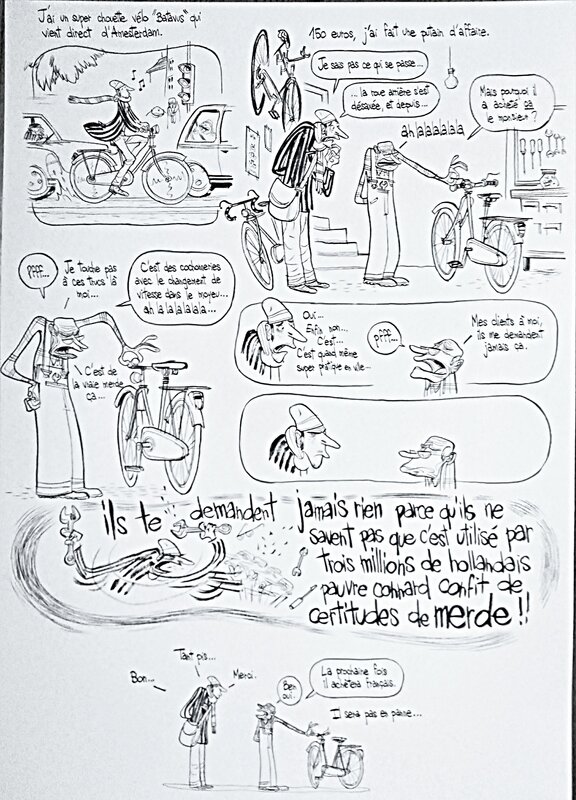 J'ai un super chouette vélo "Batavus" qui
vient direct d'Amesterdam.
150 euros, j'ai fait une putain d'affaire.
Je sais pas ce qui se passe...
... la roue arrière s'est
désaxée, et depuis...
ah lalalalala
Mais pourquoi il
a acheté ça
le monsieur ?
Pfff...
Je touche pas
à ces trucs là
moi...
C'est des cochonneries
avec le changement de
vitesse dans le moyeu...
ah la la la la la...
C'est de
la vraie merde
ça...
Oui...
Enfin non...
C'est...
C'est quand même
super pratique en ville...
Pfff...
Mes clients à moi,
ils me demandent
jamais ça.
ils te demandent jamais rien parce qu'ils ne
savent pas que c'est utilisé par
trois millions de hollandais
pauvre connard confit de
certitudes de merde !!
Bon...
Tant pis...
Merci.
Ben
oui.
La prochaine fois
il achètera Français.
Il sera pas en panne...